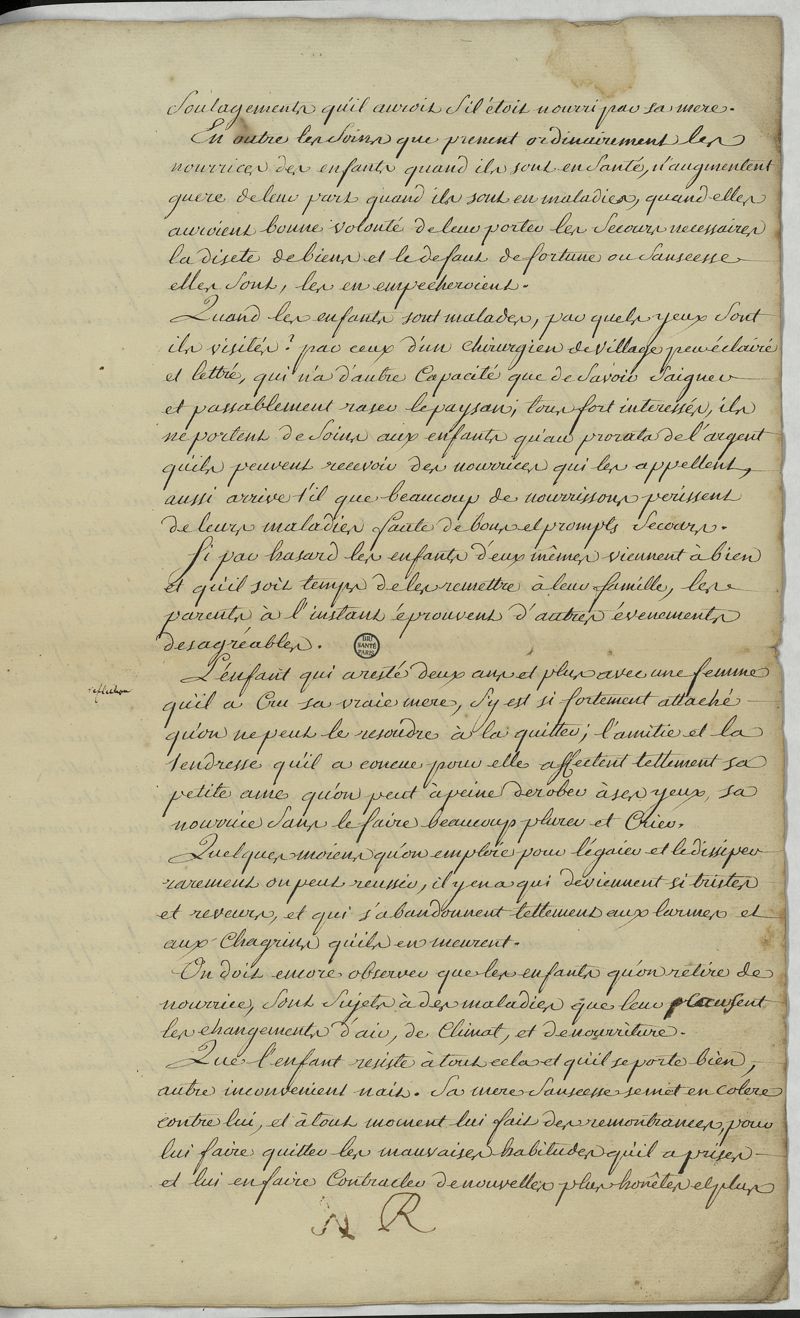 Soulagements qu'il auroit S'il étoit nourri par sa mere.
En outre les Soins que prenent ordinairement les
nourrices des enfants quand ils sont en Santé, n'augmentent
guere de leur part quand ils sont en maladies, quand elles
auroient bonne volonté de leur porter les Secours necessaires
la disete de biens et le defaut de fortune ou Sanscesse
elles Sont, les en empecheroient.
Quand les enfants sont malades, par quels yeux Sont
ils visités? par ceux d'un chirurgien de village peu éclairé
et lettré, qui n'a d'autre Capacité que de Savoir Saigner
et passablement raser le paysan; tous fort interessés, ils
ne portent de Soins aux enfants qu'au prorata de l'argent
qu'ils peuvent recevoir des nourrices qui les appellent,
aussi arrive t'il que beaucoup de nourrissons périssent
de leurs maladies faute de bons et prompts Secours.
Si par hasard les enfants d'eux mêmes viennent à bien
et qu'il soit temps de les remettre à leur famille, les
parents à l'instant éprouvent d'autres évenements
desagréables.
BIU
SANTÉ
PARIS
reflection
L'enfant qui a resté deux ans et plus avec une femme
qu'il a Cru sa vraie mere, s'y est si fortement attaché
qu'on ne peut le resoudre à la quitter; l'amitie et la
tendresse qu'il a concue pour elle affectent tellement sa
petite ame qu'on peut à peine derober à ses yeux, sa
nourrice Sans le faire beaucoup plurer et Crier.
Quelques moiens qu'on emploie pour l'égaier et le dissiper
rarement on peut reussir, il y en a qui déviennent si tristes
et reveurs, et qui s'abandonnent tellement aux larmes et
aux Chagrins qu'ils en meurent.
On doit encore observer que les enfants qu'on retire de
nourrice, sont Sujets à des maladies que leur causent
les changements d'air, de Climat, et de nourriture.
Que l'enfant resiste à tout cela et qu'il se porte bien,
autre inconvenient nait. Sa mere Sanscesse se met en colere
contre lui, et à tout moment lui fait des remontrances, pour
lui faire quitter les mauvaises habitudes qu'il a prises
et lui en faire Contracter de nouvelles plus honêtes et plus
R